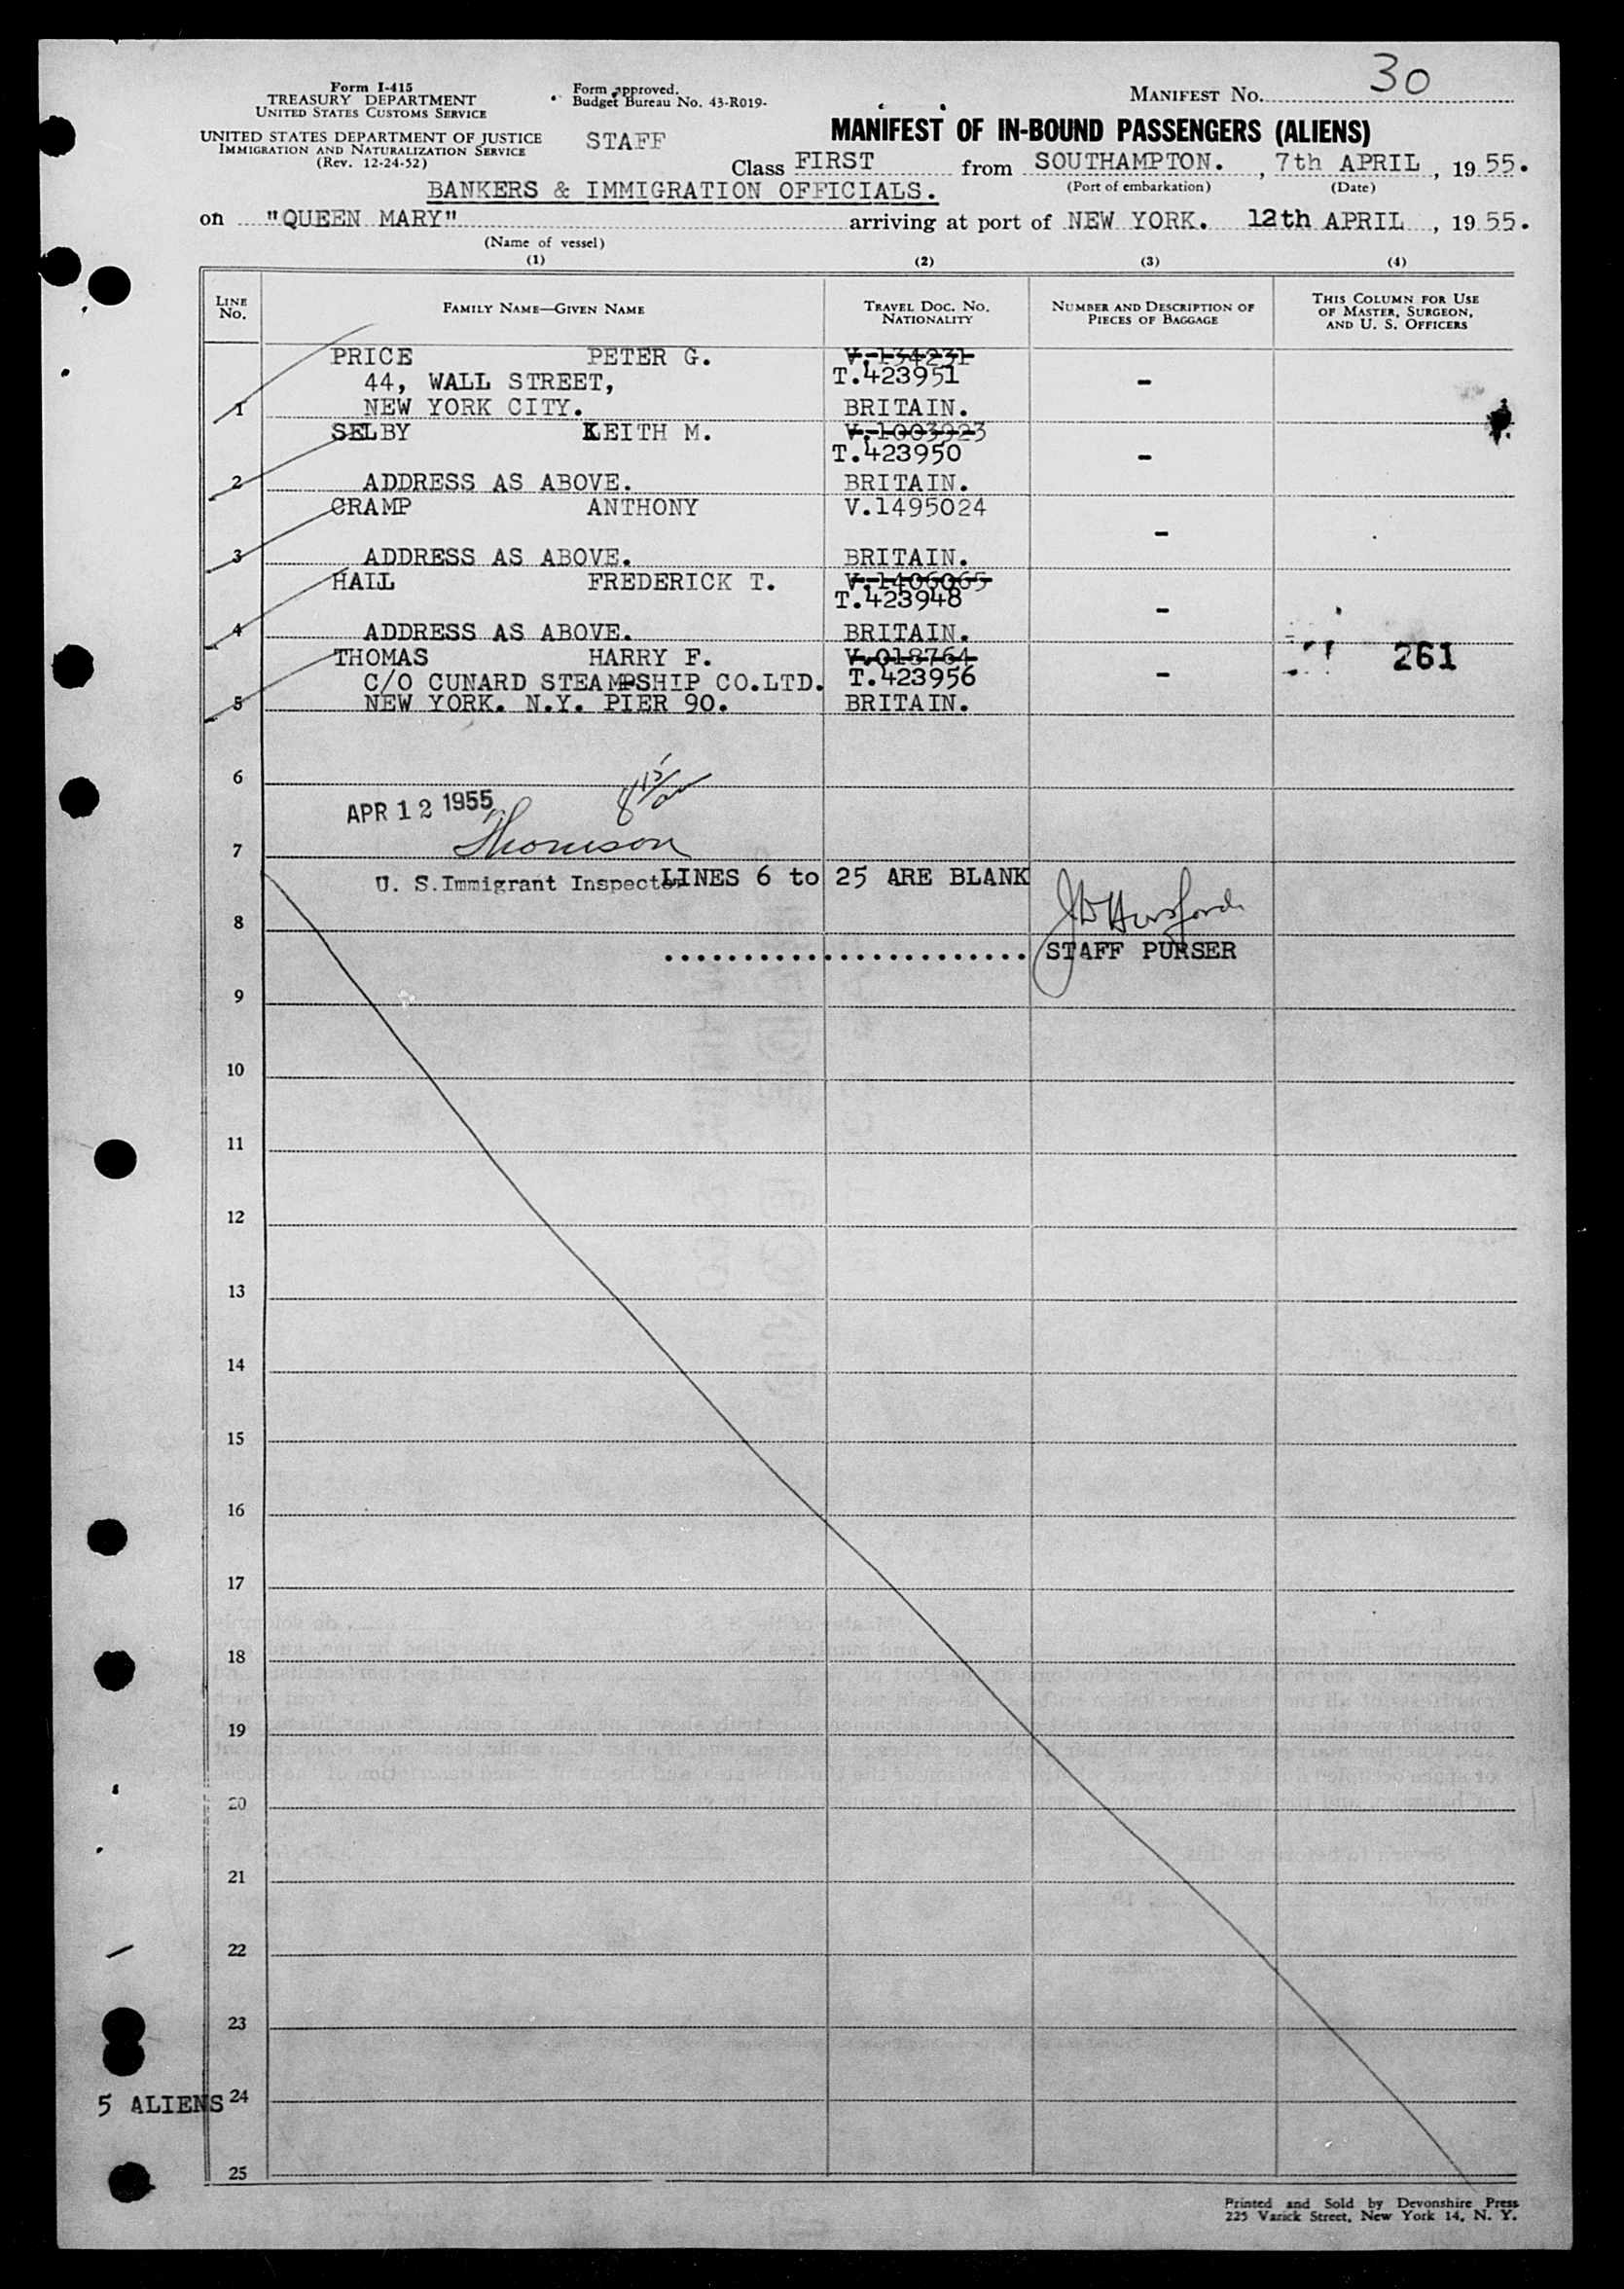 30
Form I-415
TREASURY DEPARTMENT
UNITED STATES CUSTOMS SERVICE
Form approved.
Budget Bureau No. 43-R019-
MANIFEST No.
UNITED STATES DEPARTMENT OF JUSTICE
IMMIGRATION AND NATURALIZATION SERVICE
(Rev. 12-24-52)
STAFF
MANIFEST OF IN-BOUND PASSENGERS (ALIENS)
Class FIRST from SOUTHAMPTON. , 7th APRIL , 19 55.
(Port of embarkation) (Date)
BANKERS & IMMIGRATION OFFICIALS.
on "QUEEN MARY" arriving at port of NEW YORK. 12th APRIL , 19 55.
(Name of vessel)
(1) (2) (3) (4)
LINE No. FAMILY NAME—GIVEN NAME TRAVEL DOC. No. NATIONALITY NUMBER AND DESCRIPTION OF PIECES OF BAGGAGE THIS COLUMN FOR USE OF MASTER, SURGEON, AND U. S. OFFICERS
PRICE PETER G. V.134231
44, WALL STREET, T.423951 -
1 NEW YORK CITY. BRITAIN.
SELBY KEITH M. V.1003923
T.423950 -
2 ADDRESS AS ABOVE. BRITAIN.
CRAMP ANTHONY V.1495024
-
3 ADDRESS AS ABOVE. BRITAIN.
HALL FREDERICK T. V.1406065
T.423948 -
4 ADDRESS AS ABOVE. BRITAIN.
THOMAS HARRY F. V.018764 261
C/O CUNARD STEAMSHIP CO.LTD. T.423956 -
5 NEW YORK. N.Y. PIER 90. BRITAIN.
6
APR 12 1955
7
U. S. Immigrant Inspector LINES 6 to 25 ARE BLANK
8
STAFF PURSER
9
10
11
12
13
14
15
16
17
18
19
20
21
22
23
5 ALIENS 24
25
Printed and Sold by Devonshire Press
225 Varick Street, New York 14, N. Y.